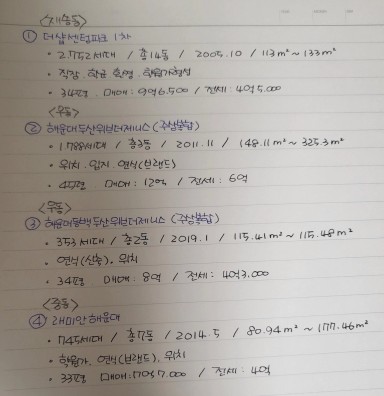 <재송동>
① 더샵센텀파크 1차
• 2,752세대 / 총14동 / 2005.10 / 113㎡~133㎡
• 직장. 학군. 환경. 학원가형성
• 34평. 매매: 9억6,500 / 전세: 4억5,000
<우동>
② 해운대두산위브더제니스 (주상복합)
• 1,788세대 / 총3동 / 2011.11 / 148.11㎡~325.3㎡
• 위치. 입지. 연식(브랜드)
• 45평 매매: 12억 / 전세: 6억
<우동>
③ 해운대동백두산위브더제니스 (주상복합)
• 353세대 / 총2동 / 2019.1 / 115.41㎡~115.48㎡
• 연식(신축), 위치
• 34평 매매: 8억 / 전세: 4억3,000
<중동>
④ 래미안해운대
• 745세대 / 총7동 / 2014.5 / 80.94㎡~177.46㎡
• 학원가, 연식(브랜드), 위치
• 33평 매매: 7억7,000 / 전세: 4억